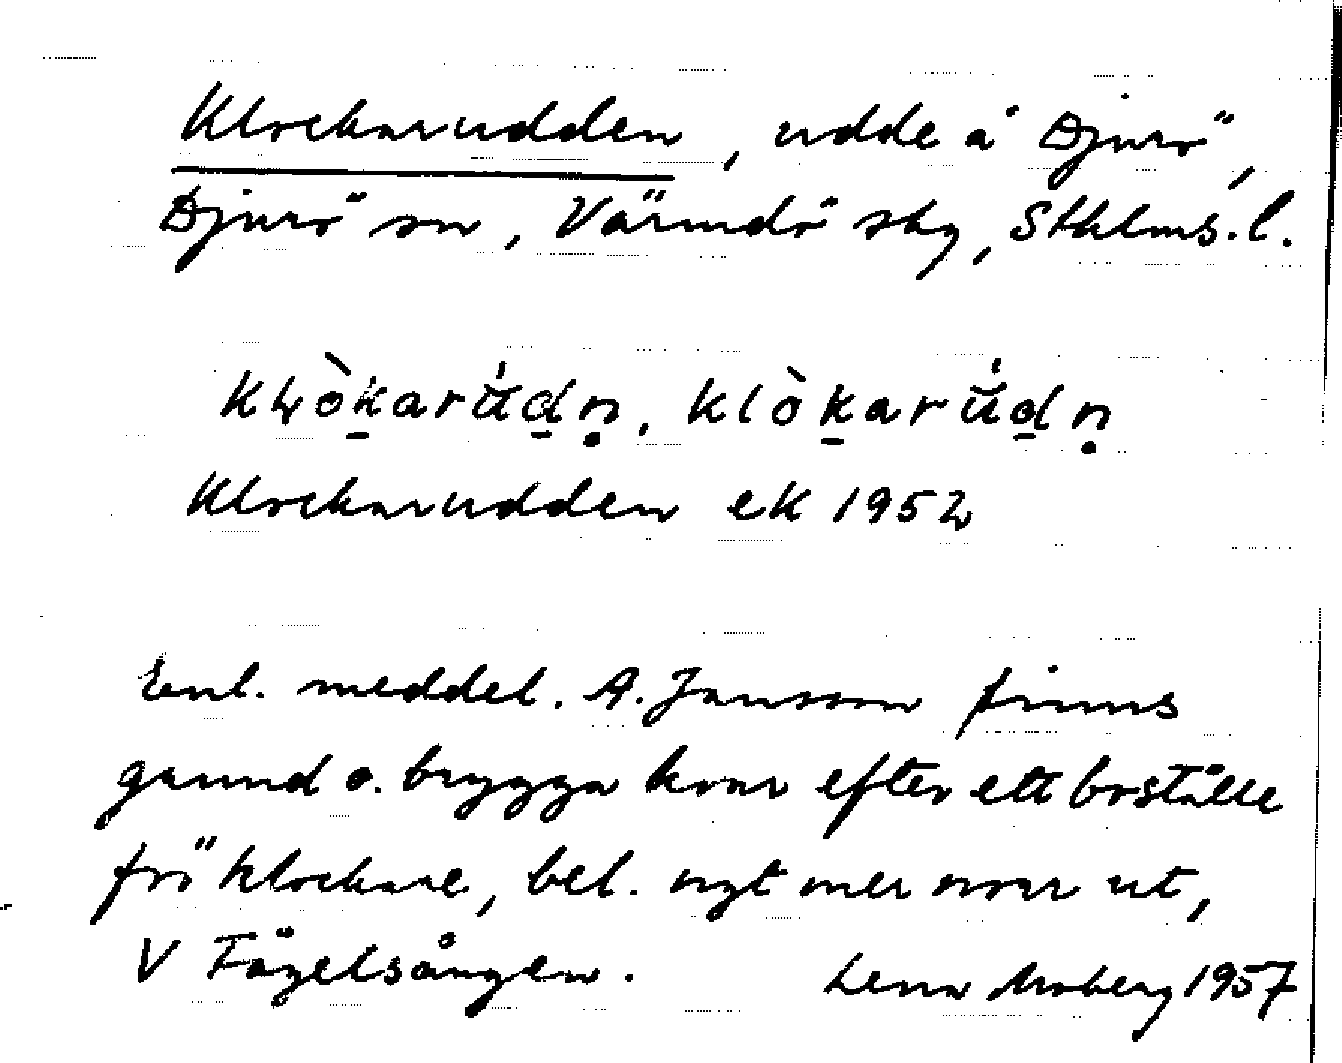 Klockarudden, udde å Djurö,
Djurö sn, Värmdö skg, Sthlms. l.
kłòkarúdn̥, klòkarúdn̥
Klockarudden ek 1952
Enl. meddel. A. Jansson finns
grund o. brygga kvar efter ett boställe
för klockare, bel. ngt mer norr ut,
V Fågelsången. Lena Moberg 1957